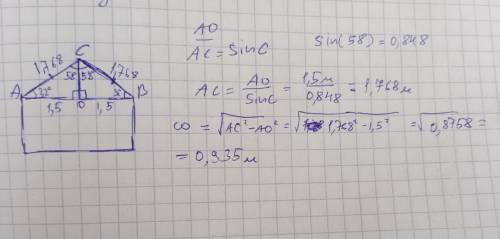 C
1,768 58 58 1,768
A 32° B
1,5 O 1,5
AO/AC = SinC
sin(58) = 0,848
AC = AO/SinC = 1,5м/0,848 = 1,768м
CO = √AC²-AO² = √1,768²-1,5² = √0,8758 =
= 0,935м